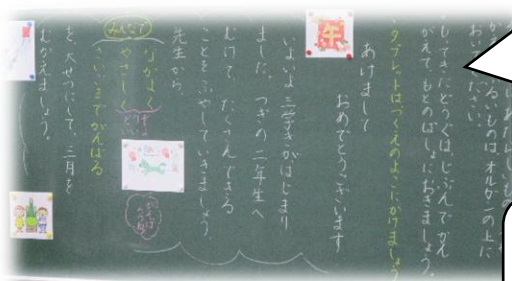 いものは オルガンの上に
おいてください。
もってきたどうぐは じぶんでかん
がえて、もとのばしょにおきましょう。
タブレットは つくえのよこにかけましょう
午
あけまして
おめでとうございます
いよいよ 三学きがはじまり
ました。つぎの 二年生へ
むけて、たくさんできる
ことをふやしていきましょう
先生から
みんなで
なかよく
やさしく
さいごまでがんばる
を 大せつにして、三月を
むかえましょう。